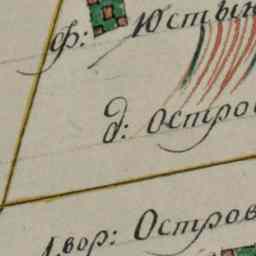 ф: Юстын
д: Остров
Двор: Остров